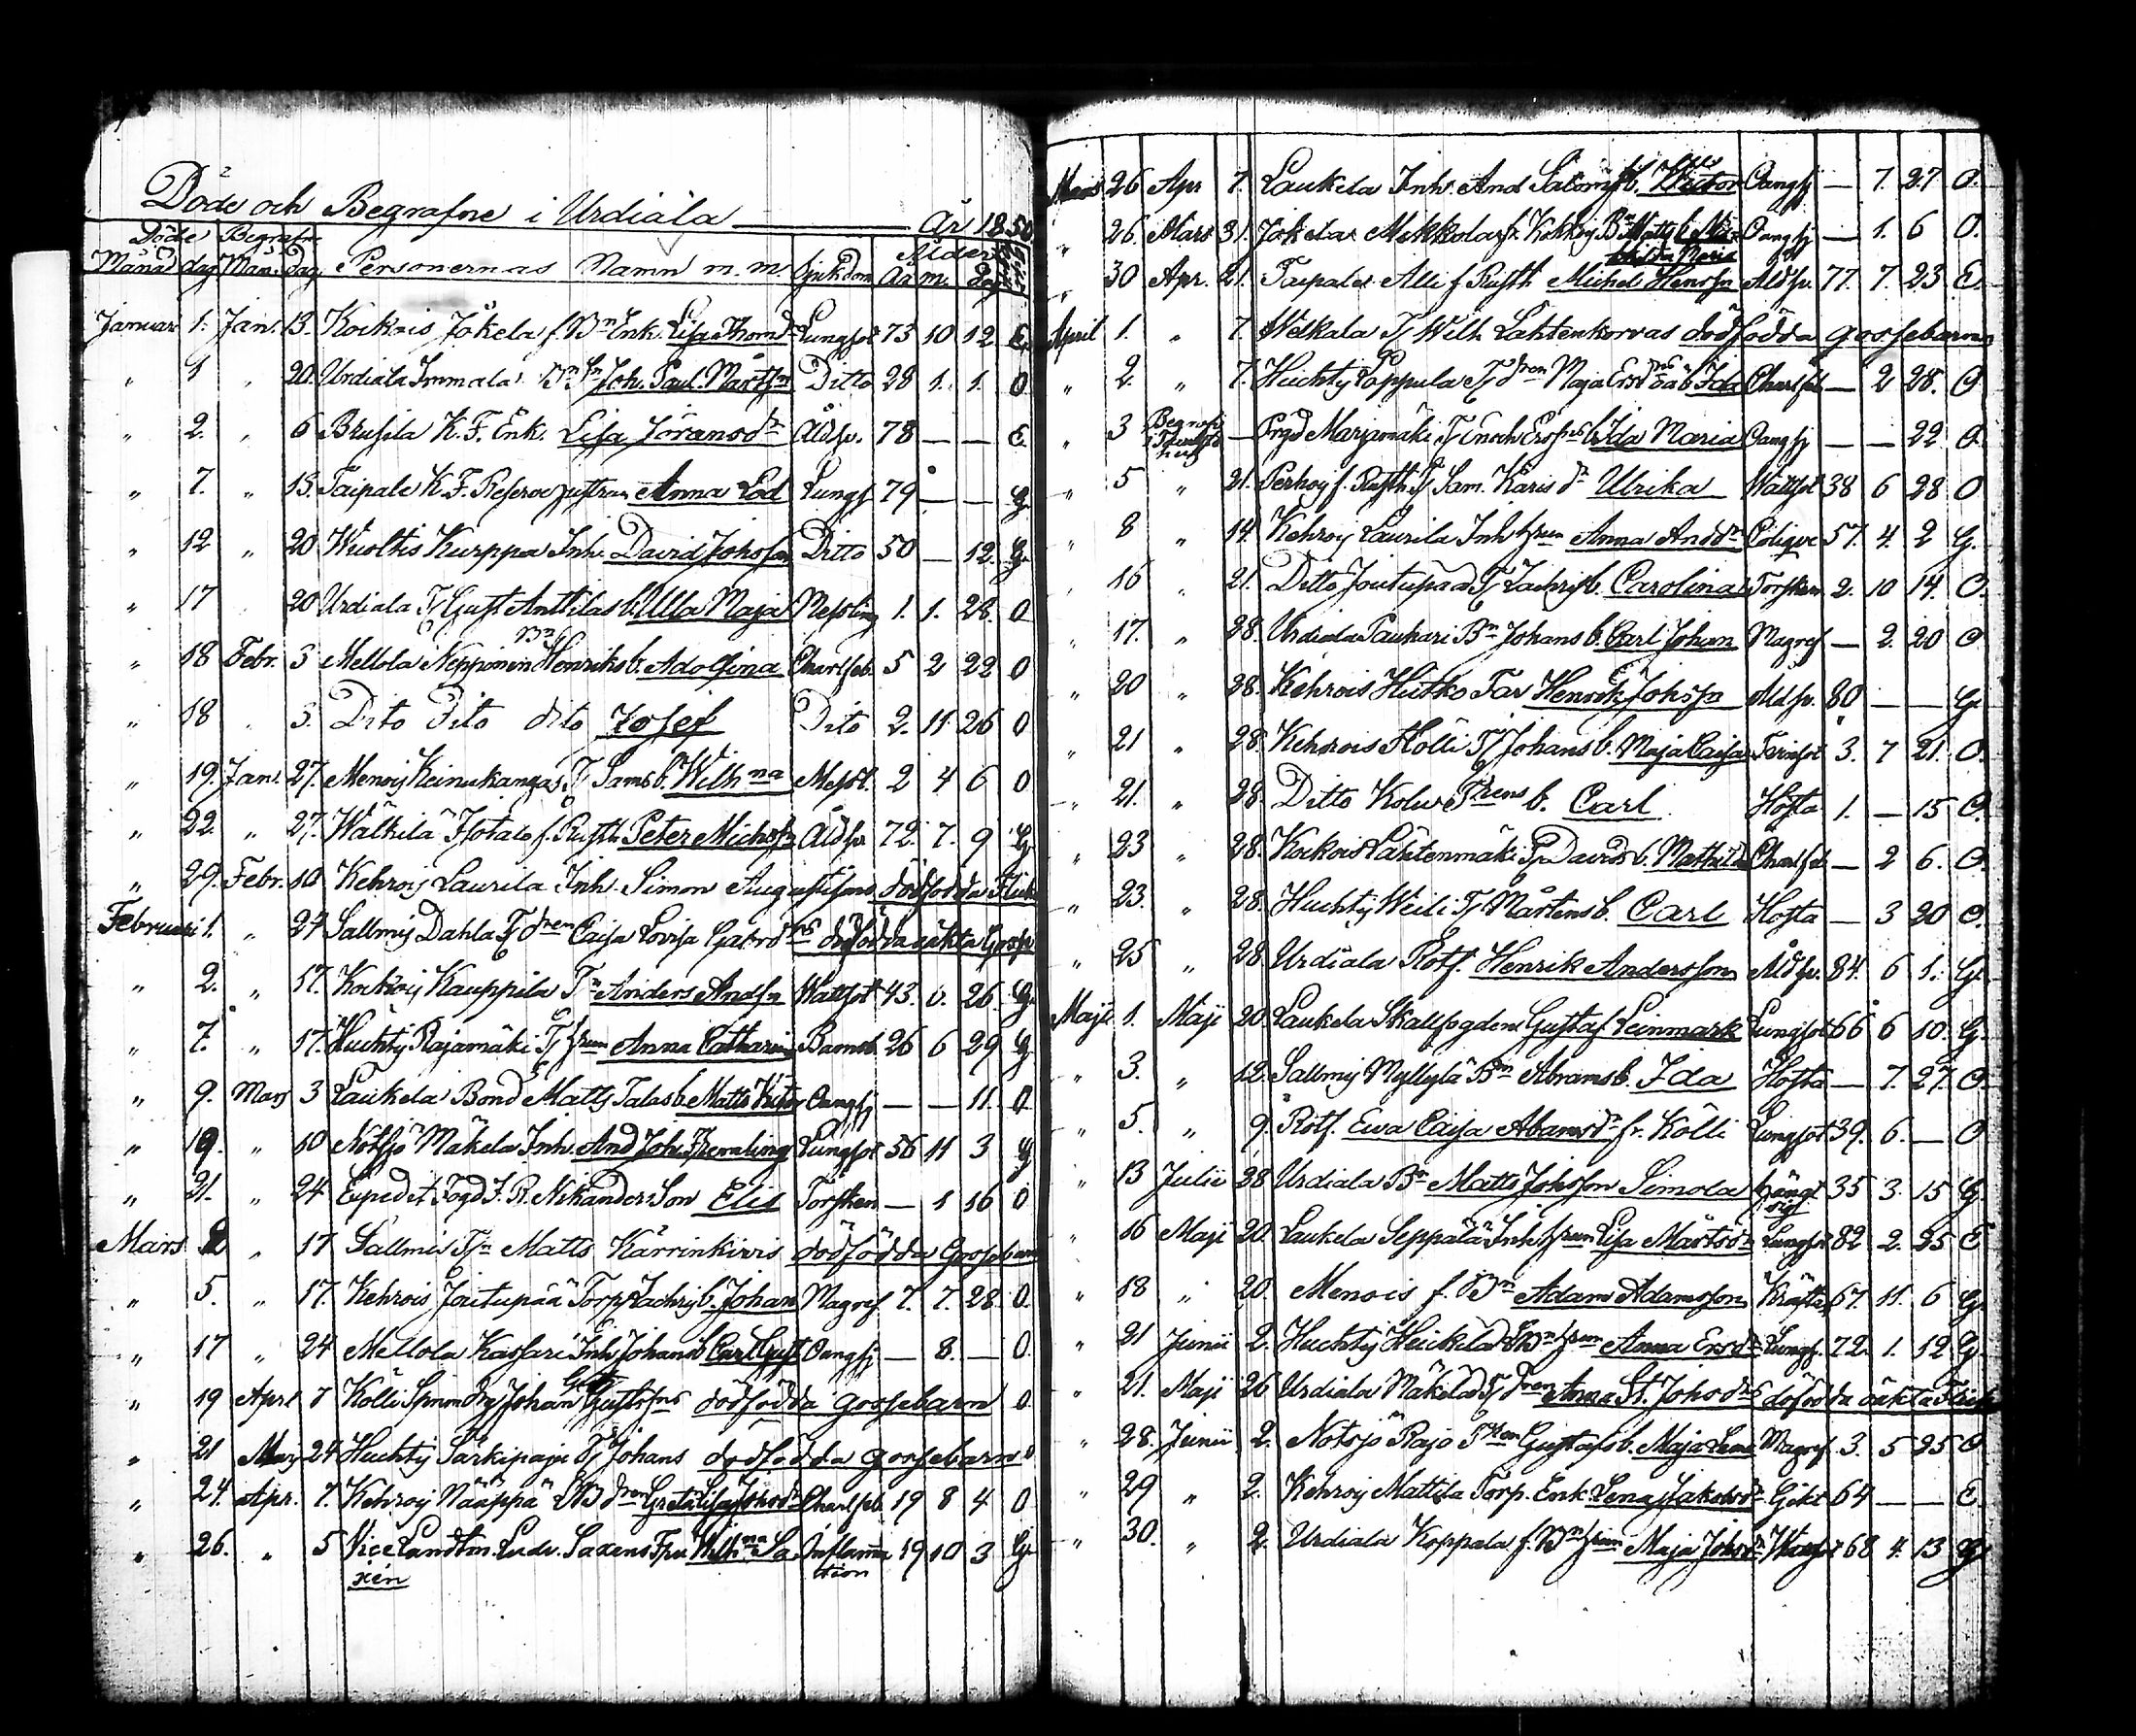 Döde och Begrafne i Urdiala År 1850
Döde Begrafne Ålder
Månad dag Mån. dag Personernas Namn m.m. Sjukdom År M. Dag
Januar 1. Jan. 13. Kockois Jokela f. Bn Enk. Lisa Thomdr Lungsot 73 10 12 E.
" 1 " 20. Urdiala Immala Joh. Paul. Mårtsn Ditto 28 1. 1. O
" 2. " 6 Brusila K. F. Enk. Lisa Göransdr Åldsv. 78 — — E.
" 7. " 13. Taipale K. F. Anna Lod Lungs 79 — — G.
" 12 " 20 Wuoltis Kurppa Inh. David Johsson Ditto 50 — 12. G.
" 17 20 Urdiala Tj Gust Anttilas b. Ulla Maja Messling 1. 1. 28. O
" 18 Febr. 3 Mellola Bn Henriks b. Adolfina Charlfeb. 5 2 22 O
" 18 " 3. Dito Dito dito Josef Dito 2. 11 26 O
" 19. Jan. 27. Menoij Keinukangas Tj Sams b. Wilhna Messl. 2 4 6 O
" 22. " 27. Wälkilä f. Rusth. Peter Michsn Åldsv 72. 7. 9 G.
" 29. Febr. 10 Kehroij Laurila Inh. Simon Augustssons dödfödda Flicka
Februari 1. " 24 Sallmij Dahla Tj dren Caisa Lovisa dödfödda oäkta Gosse
" 2. " 17. Kockoij Kauppila Tn Anders Andsn Wattsot 43. 0. 26. G.
" 7. " 17. Huchtij Rajamäki Tj hrun Anna Catharina Barnsb. 26 6 29 G
" 9. Mars 3 Laukela Bond Matts Talas b. Matts Victor Oangsj — — 11. O.
" 19. " 10 Nötsjö Mäkelä Inh. And Joh. Lungsot 56 11 3 G
" 21. " 24 Expedit Fogd J. R. Nikanders Son Elis Torsken — 1 16 O
Mars 2 " 17 Sallmis Tjn Matts Kärrinkivis dödfödda Gossebarn
" 5. " 17. Kehrois Joutupää Torp Zachrij b. Johan Magref 7. 7. 28. O.
" 17 " 24 Mellola Kassari Inh Johans b. Carl Gust Oangsj — 8. — O.
" 19 Aprl 7 Kölli Johan Gustsons dödfödda gossebarn O
" 21 Mars 24 Huchtij Särkipaju Tj Johans dödfödda gossebarn
" 24. Apr. 7. Kehroij Nääppä dren Greta Lisa Johsdr Charlfeb. 19 8 4 O
" 26. " 5 Vice Landtm. Ludv. Saxens Fru Wilhna Sa- Inflamma 19 10 3 G.
xen tion
Mars 26 Apr 7. Laukela Inh. And Salom b. Victor Oangsj — 7. 27 O.
" 26. Mars 31. Jokela Mikkola Bn Matts b. Oangsj — 1. 6 O.
Maria
" 30 Apr. 21. Taipale Alli f Rusth Michel Henrsn Åldsv. 77. 7. 23 E.
April 1. " 7. Welkala Tj Wilh Lahtenkorvas dödfödda gossebarn
" 2. " 7. Huchtij Pappula Tj dren Maja Ersdrs oä b. Ida Charlfeb — 2 28. O.
" 3 Begrofs i — Prgd Marjamäki Tj Enoch Erssns b. Ida Maria Oangsj — — 22 O.
" 5 " 21. Perhoij f. Rusth Tj Sam. Karis dr Ulrika Wattsot 38 6 28 O
" 8 " 14. Kehroij Laurila Inh hrun Anna Anddr Colique 57. 4. 2 G.
" 16 " 21. Ditto Joutupää Tj Zachrij b. Carolina Torsken 2. 10 14. O.
" 17. " 28. Urdiala Paukari Bn Johans b. Carl Johan Magref — 2. 20 O
" 20 " 28. Kehrois Huhko Tar Henrik Johssn Åldsv. 80 — — G.
" 21 " 28. Kehrois Hölli Tj Johans b. Maja Caisa Tvinsot 3. 7 21. O.
" 21. " 28. Ditto Kolu Tjrens b. Carl Hosta 1. — 15 O.
" 23 " 28. Kockois Lähtenmäki Tjn Davids b. Mathilda Charlfeb — 2 6. O.
" 23. " 28. Huchtij Weili Tj Mårtens b. Carl Hosta — 3 20 O.
" 25 " 28. Urdiala Rotf. Henrik Andersson Åldsv. 84. 6 1. G.
Maji 1. Maji 20. Laukela Skallfogden Gustaf Leinmark Lungsot 66 6 10. G.
" 3. " 12. Sallmij Myllylä Bn Abrams b. Ida Hosta — 7. 27. O.
" 5. " 9. Rotf. Ewa Caisa Abramsdr fr. Kölli Lungsot 39. 6. — O
" 13 Julii 28 Urdiala Bn Matts Johsson Simola hängt sig 35 3. 15 G.
" 16 Maji 20. Laukela Seppälä Inh hrun Lisa Mårtsdr Lungsot 82 2. 25 E
" 18 " 20. Menois f. Bn Adam Adamsson Kräfta 67. 11. 6 G.
" 21 Junii 2. Huchtij Heickelä hrun Anna Ersdr Lungs. 72. 1. 12 G.
" 21. Maji 26 Urdiala Mäkelä Tj dren Anna St. Johsdrs dödfödda oäkta Flicka
" 28. Junii 2. Notsjö Rajo Gustafs b. Maja Lena Magref. 3. 5 25 O
" 29 " 2. Kehroij Mattila Torp. Enk. Lena Jakobsdr Gikt 64 — — E.
" 30. " 2. Urdiala Koppala f. Bn hrun Maja Johsdr Wattsot 68 4. 13 G